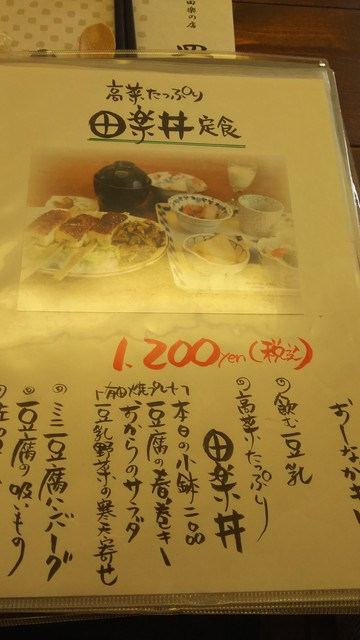 田楽の店
高菜たっぷり
田楽丼定食
1.200yen(税込)
おーなかす
◎飲む豆乳
◎高菜たっぷり
田楽丼
「有田焼プレート」
本日の小鉢二品
豆腐の春巻き
おからのサラダ
豆乳野菜の寒天寄せ
◎ミニ豆腐ハンバーグ
◎豆腐の吸いもの